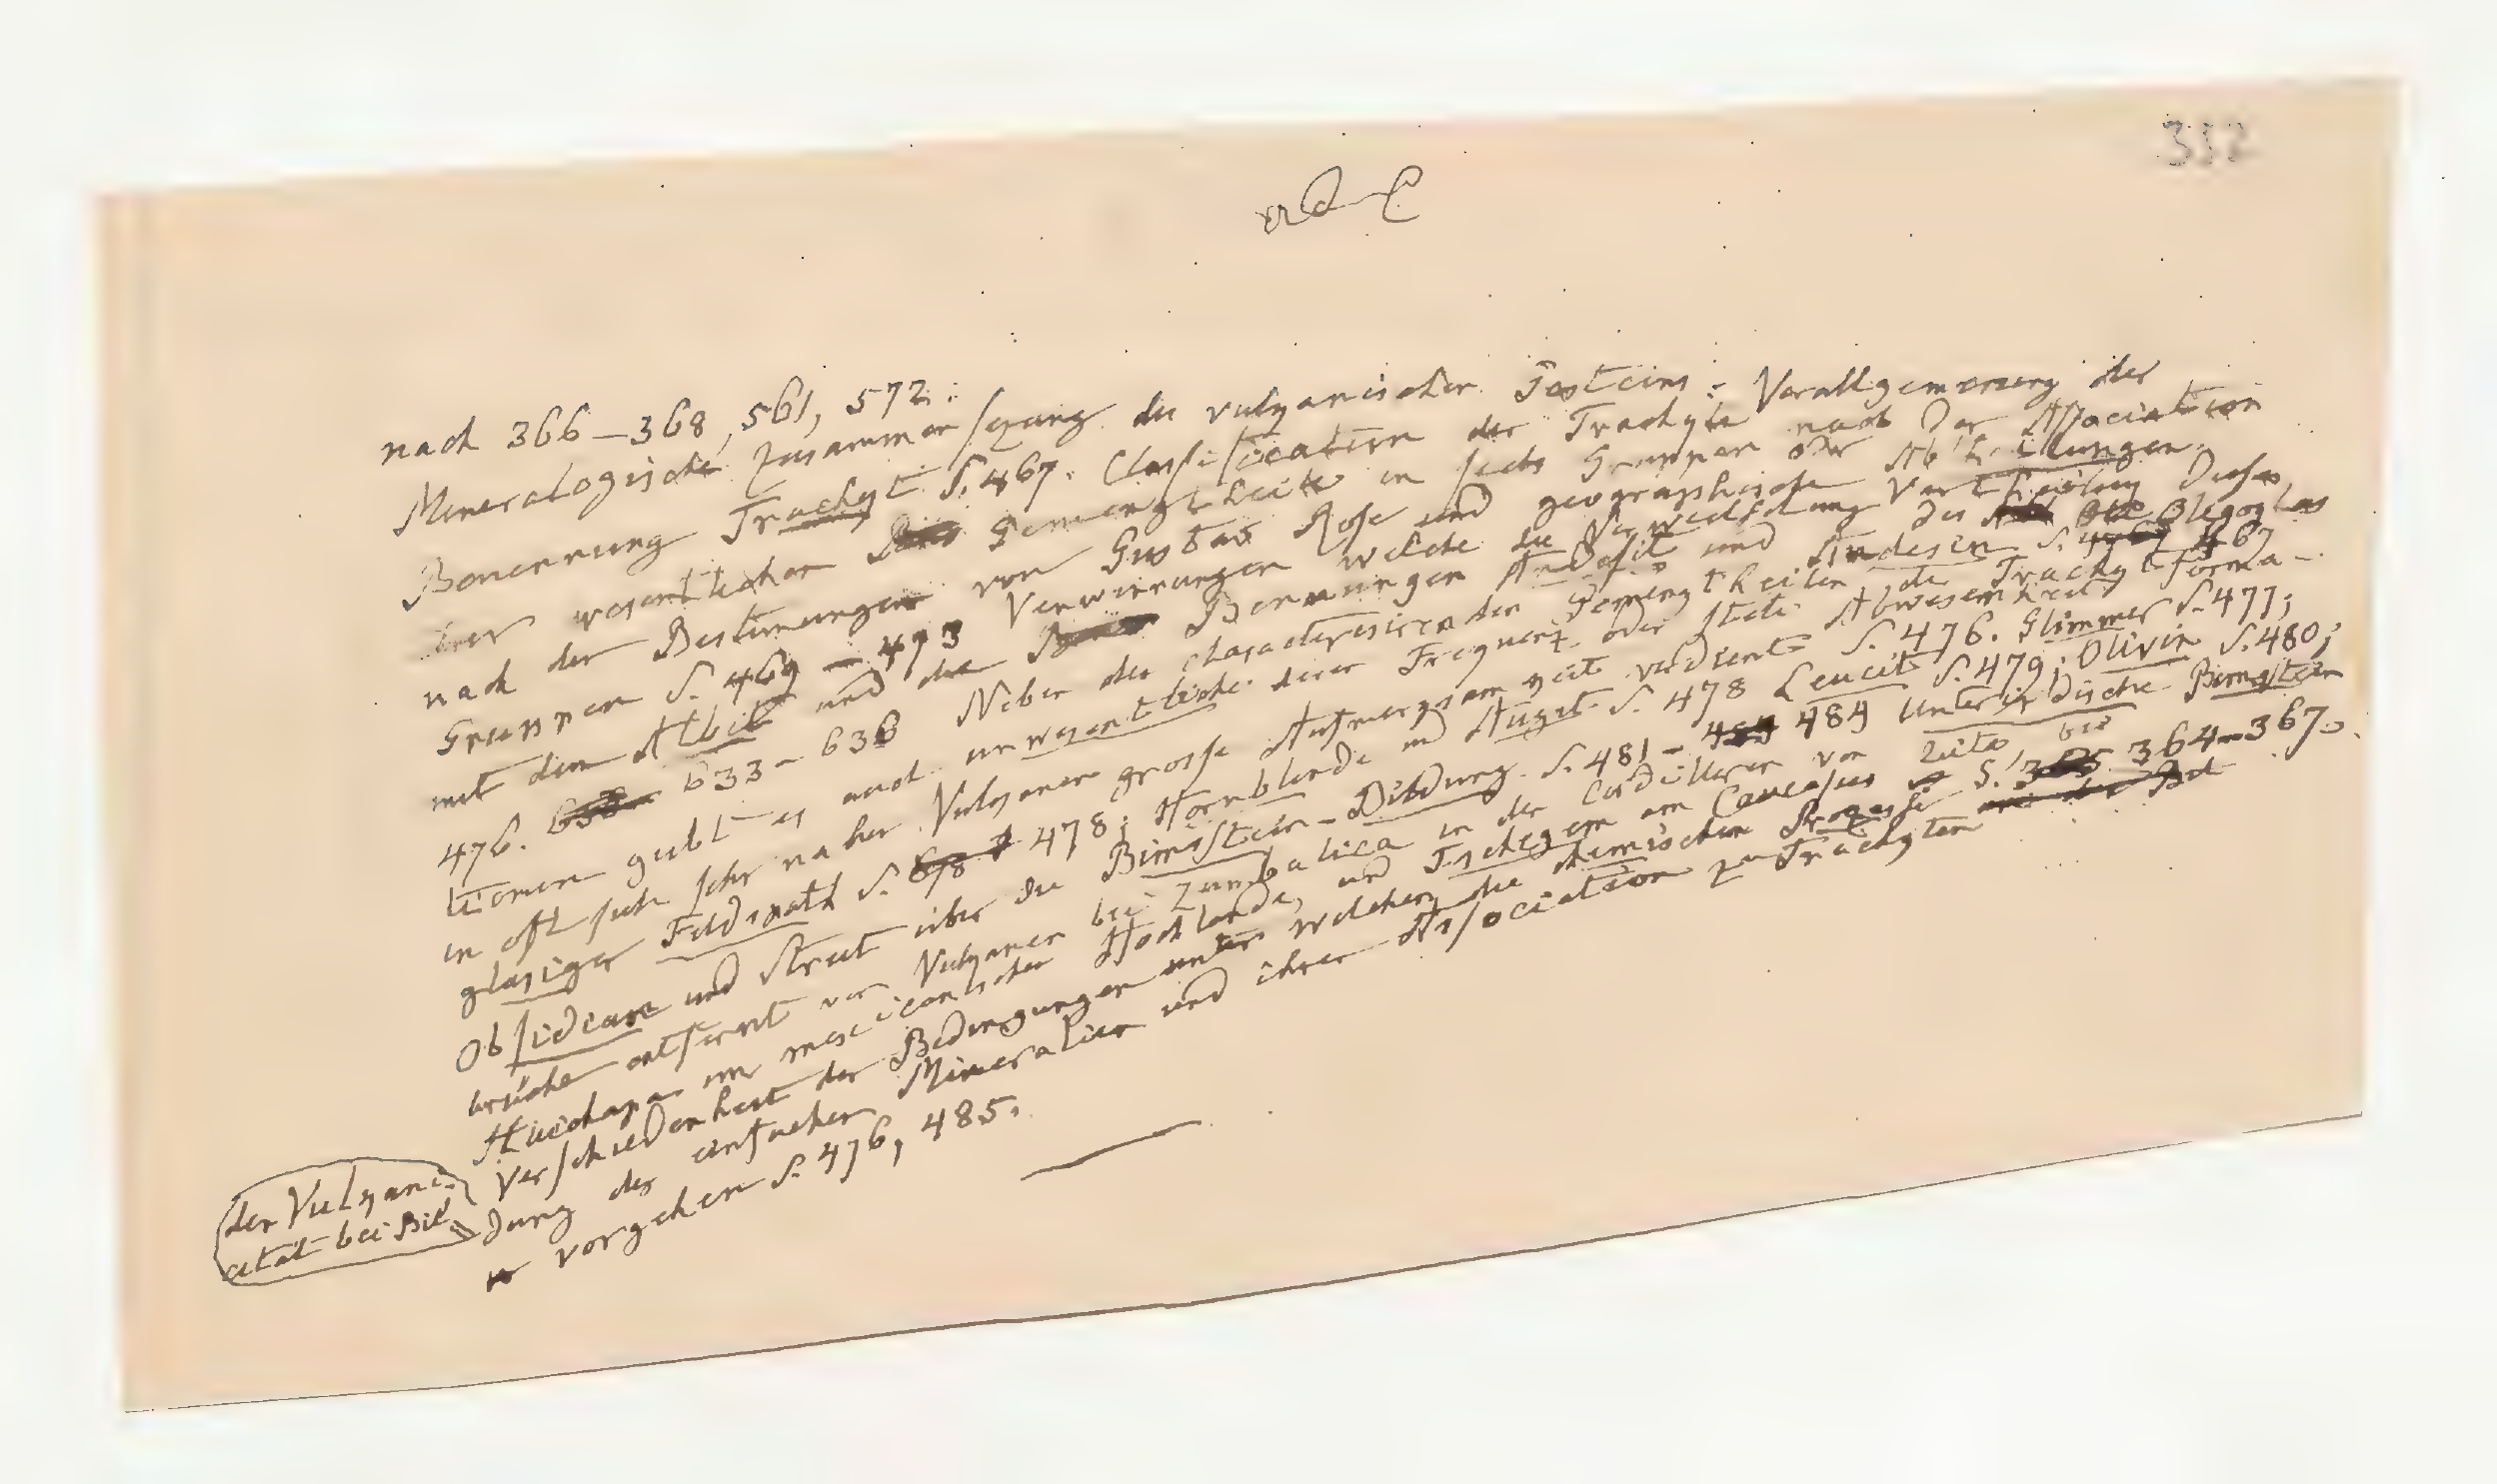 312
nach 366–368, 561, 572:
Mineralogische Zusammensezung des vulkanischen Gesteins: Verallgemeinerung der
Benennung Trachyt S. 467. Classification der Trachyte nach der Association
ihrer wesentlichen Gemengtheile in sechs Gruppen oder Abtheilungen
nach den Bestimungen von Gustav Rose und geographische Vertheilung dieser
Gruppen S. 469 – 473 Verwirrungen welche die Verwechslung des Oligoklas
mit dem Albit und die Benennungen Andesit und Andesin S. 467
476. 633–636 Neben den characterisirenden Gemengtheilen der Trachytforma-
tionen giebt es auch unwesentliche deren Frequenz oder stete Abwesenheit
in oft sich sehr nahen Vulkanen grosse Aufmerksamkeit verdient S. 476. Glimmer S. 477;
glasiger Feldspath S. 478; Hornblende und Augit S. 478 Leucit S. 479; Olivin S. 480;
Obsidian und Streit über die Bimsstein-Bildung S. 481 – 484 unterirdische Bimsstein
brüche entfernt von Vulkanen bei Zumbalica in den Cordilleren von Quito bei
Huichapa im mexicanischen Hochlande, und Tschegem am Caucasus S. 364–367.
Verschiedenheit der Bedingungen unter welchen die chemischen Prozesse
der Vulkani-
cität bei Bil
dung der einfachen Mineralien und ihrer Association zu Trachyten
vorgehen S. 476, 485.